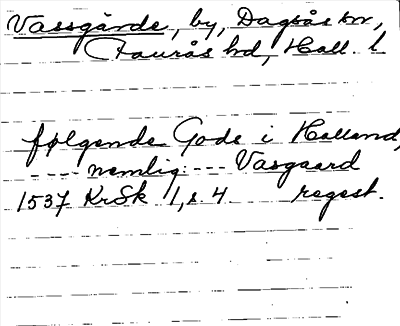 Vassgårde, by, Dagsås sn,
Faurås hd, Hall. l
følgende Gode i Halland,
---- nemlig: --- Vasgaard
1537 KrSk 1, s. 4 regest.